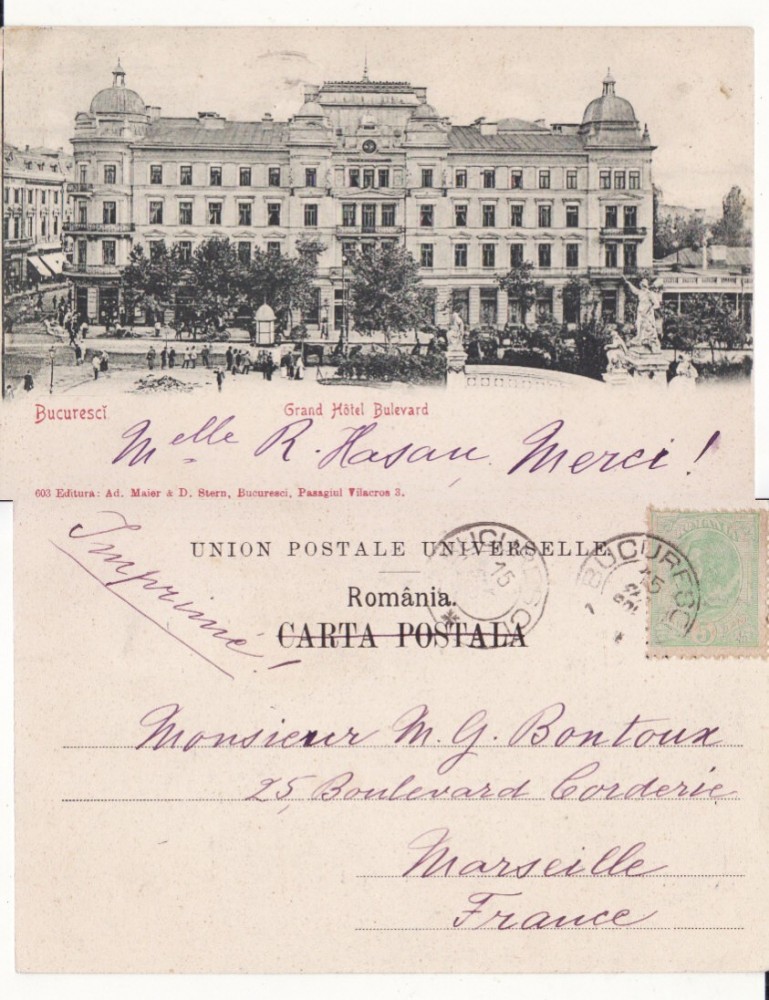 Bucurescĭ.
Grand Hôtel Bulevard
Melle R. Hasan, Merci!
603 Editura: Ad. Maier & D. Stern, Bucuresci, Pasagiul Vilacros 3.
Imprimé!
UNION POSTALE UNIVERSELLE.
România.
CARTA POSTALA
BUCURESCI
15
BUCURESCI
15
ROMANIA
5
Monsieur M. G. Bontoux
25, Boulevard Corderie
Marseille
France